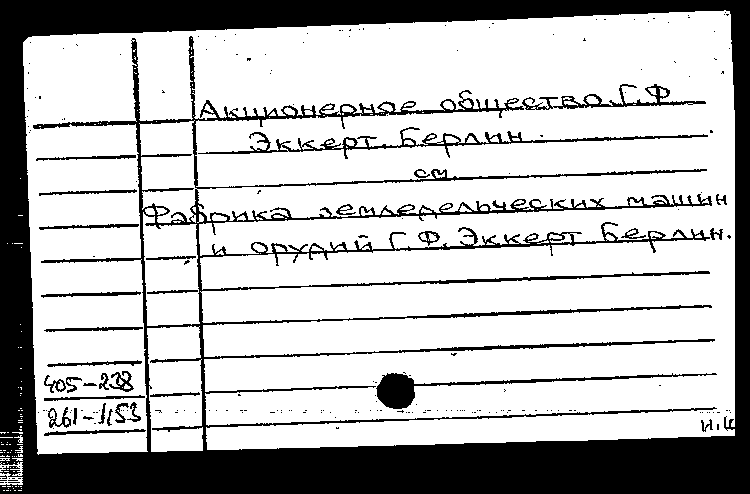 Акционерное общество Г.Ф
Эккерт. Берлин.
см.
Фабрика земледельческих машин
и орудий Г. Ф. Эккерт Берлин.
405-238
261-1153